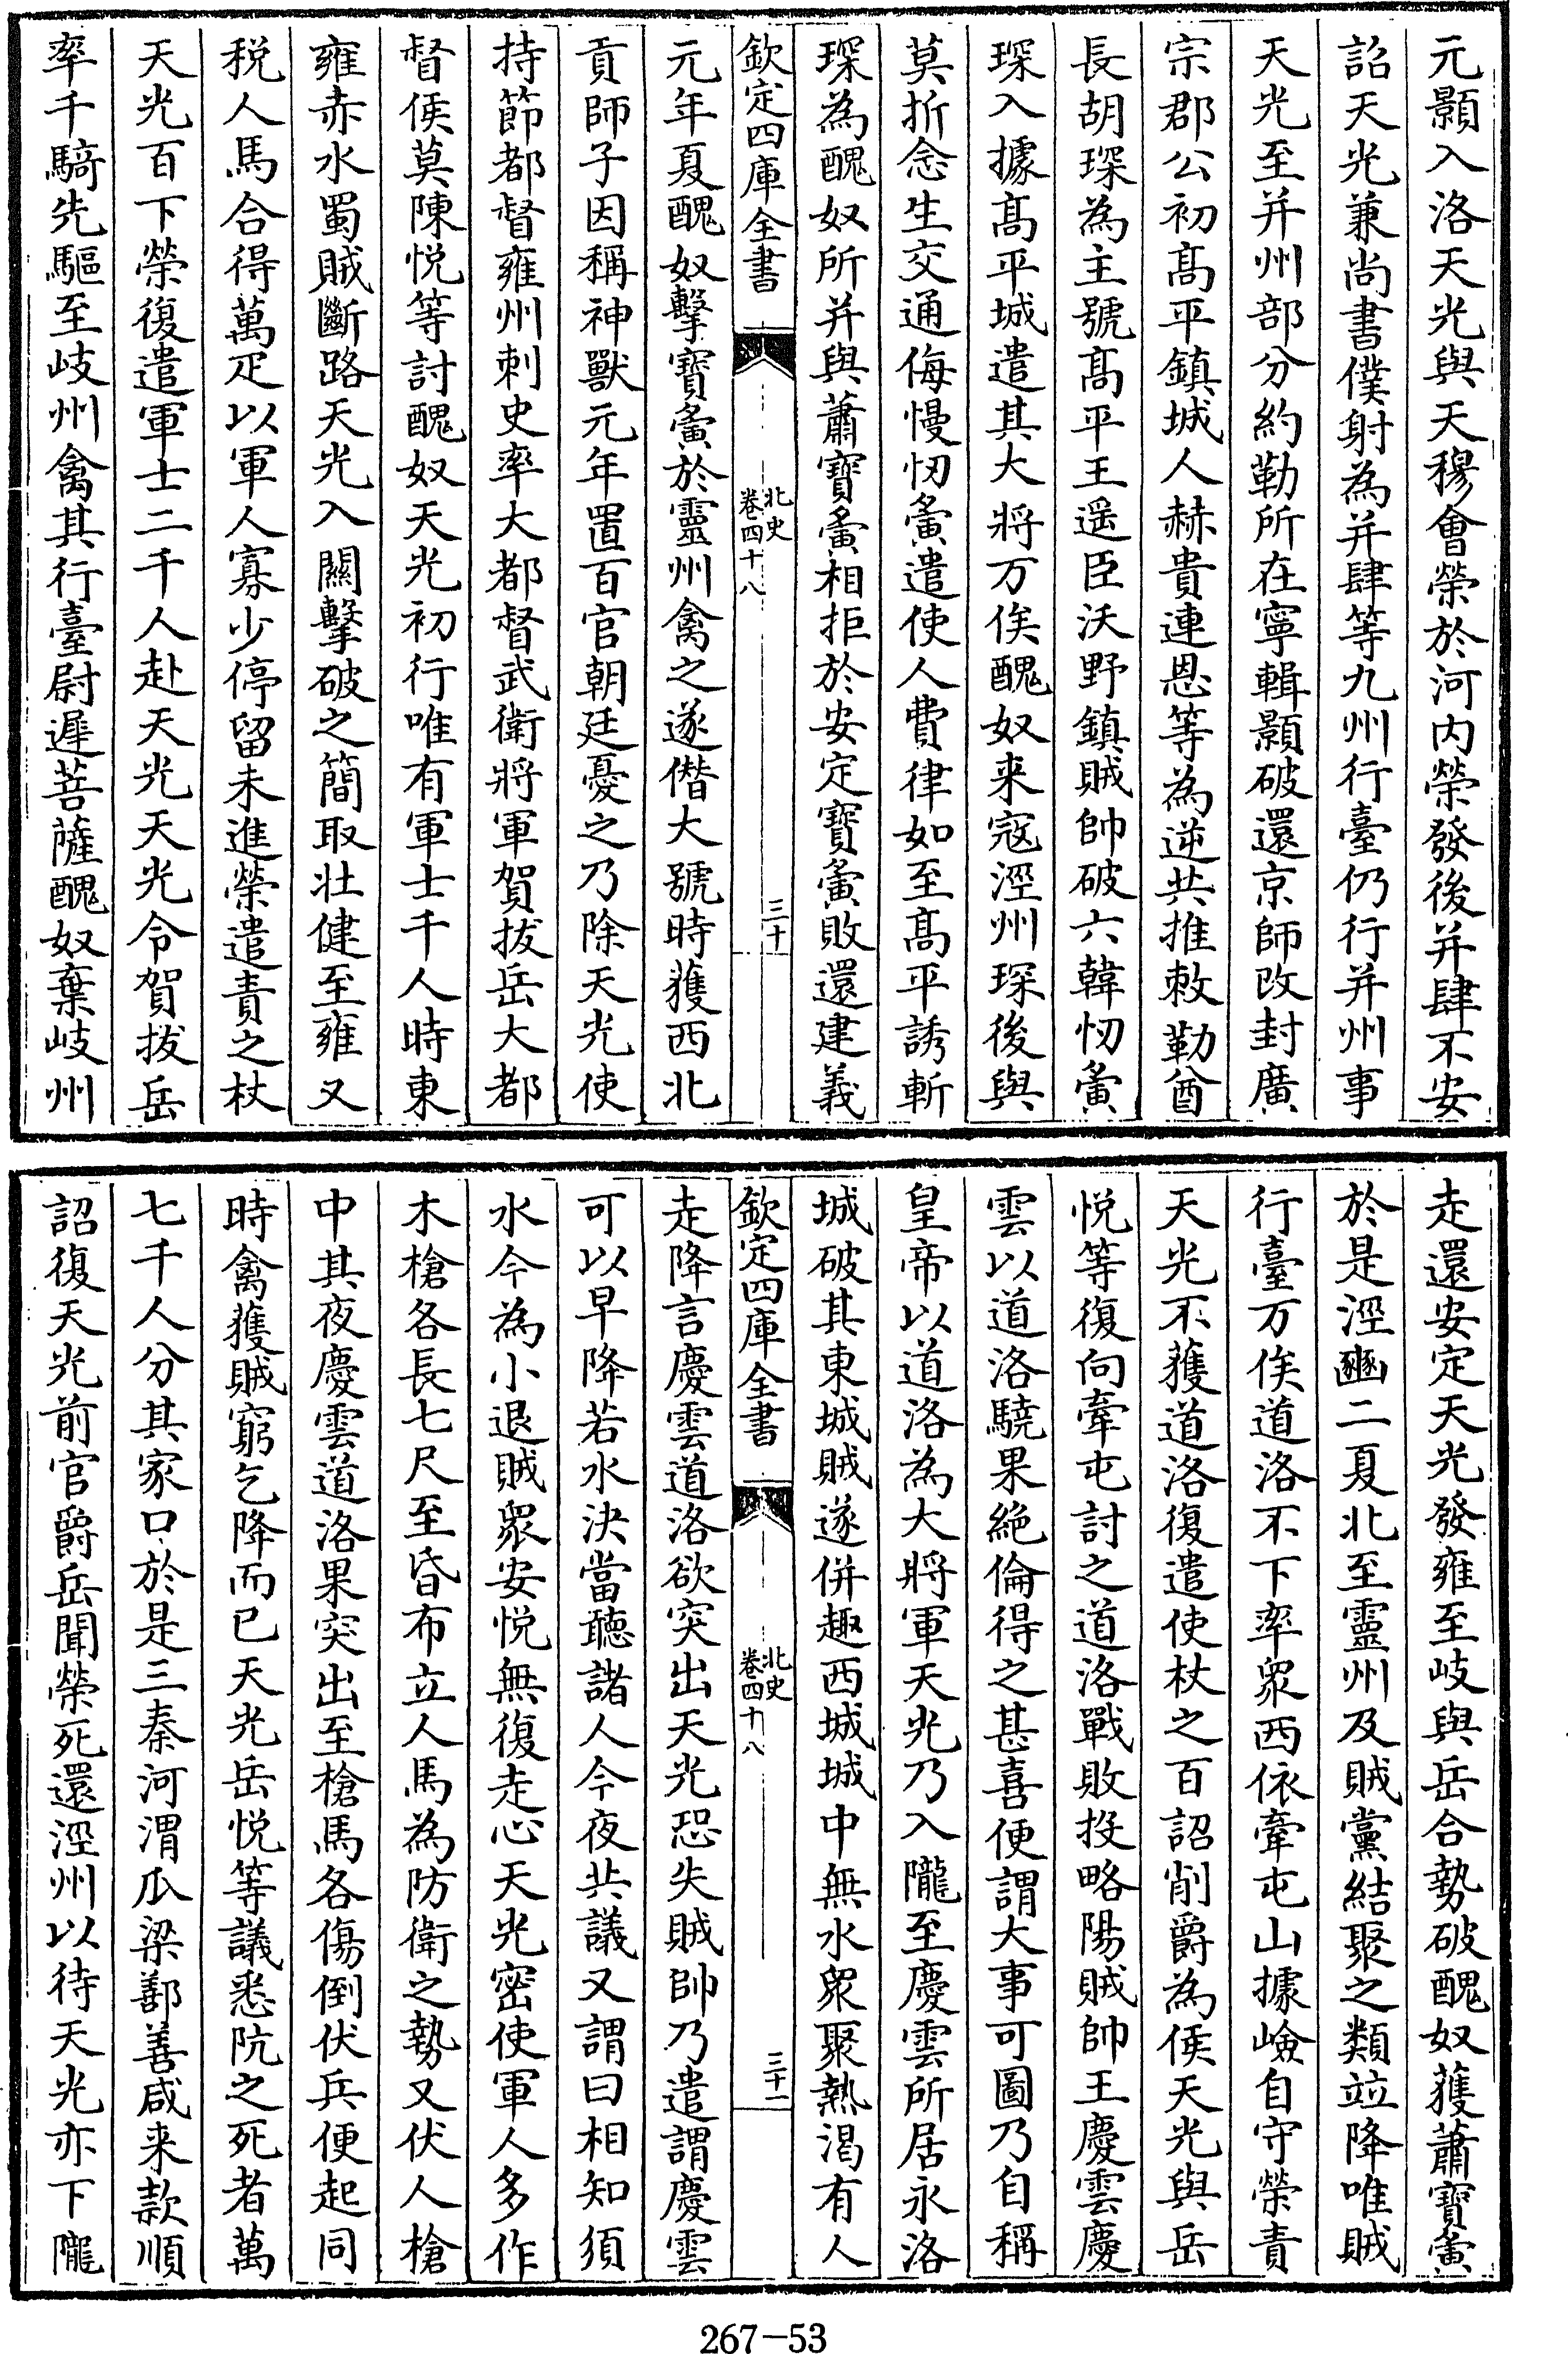 元顥入洛天光與天穆會榮於河内榮發後并肆不安
詔天光兼尚書僕射為并肆等九州行臺仍行并州事
天光至并州部分約勒所在寧輯顥破還京師改封廣
宗郡公初髙平鎮城人赫貴連恩等為逆共推敕勒酋
長胡琛為主號髙平王遥臣沃野鎮賊帥破六韓忉夤
琛入據髙平城遣其大將万俟醜奴来寇涇州琛後與
莫折念生交通侮慢忉夤遣使人費律如至髙平誘斬
琛為醜奴所并與蕭寳夤相拒於安定寳夤敗還建義
欽定四庫全書
北史
卷四十八
三十
元年夏醜奴擊寳夤於靈州禽之遂僭大號時獲西北
貢師子因稱神獸元年置百官朝廷憂之乃除天光使
持節都督雍州刺史率大都督武衛將軍賀拔岳大都
督侯莫陳悦等討醜奴天光初行唯有軍士千人時東
雍赤水蜀賊斷路天光入關擊破之簡取壯健至雍又
税人馬合得萬疋以軍人寡少停留未進榮遣責之杖
天光百下榮復遣軍士二千人赴天光天光令賀拔岳
率千騎先驅至岐州禽其行臺尉遲菩薩醜奴棄岐州
走還安定天光發雍至岐與岳合勢破醜奴獲蕭寳夤
於是涇豳二夏北至靈州及賊黨結聚之類竝降唯賊
行臺万俟道洛不下率衆西依牽屯山據嶮自守榮責
天光不獲道洛復遣使杖之百詔削爵為侯天光與岳
悦等復向牽屯討之道洛戰敗投略陽賊帥王慶雲慶
雲以道洛驍果絶倫得之甚喜便謂大事可圖乃自稱
皇帝以道洛為大將軍天光乃入隴至慶雲所居永洛
城破其東城賊遂併趣西城城中無水衆聚熱渴有人
欽定四庫全書
北史
卷四十八
三十一
走降言慶雲道洛欲突出天光恐失賊帥乃遣謂慶雲
可以早降若水決當聽諸人今夜共議又謂曰相知須
水今為小退賊衆安悦無復走心天光密使軍人多作
木槍各長七尺至昏布立人馬為防衛之勢又伏人槍
中其夜慶雲道洛果突出至槍馬各傷倒伏兵便起同
時禽獲賊窮乞降而已天光岳悦等議悉阬之死者萬
七千人分其家口於是三秦河渭瓜梁鄯善咸来款順
詔復天光前官爵岳聞榮死還涇州以待天光亦下隴
267-53